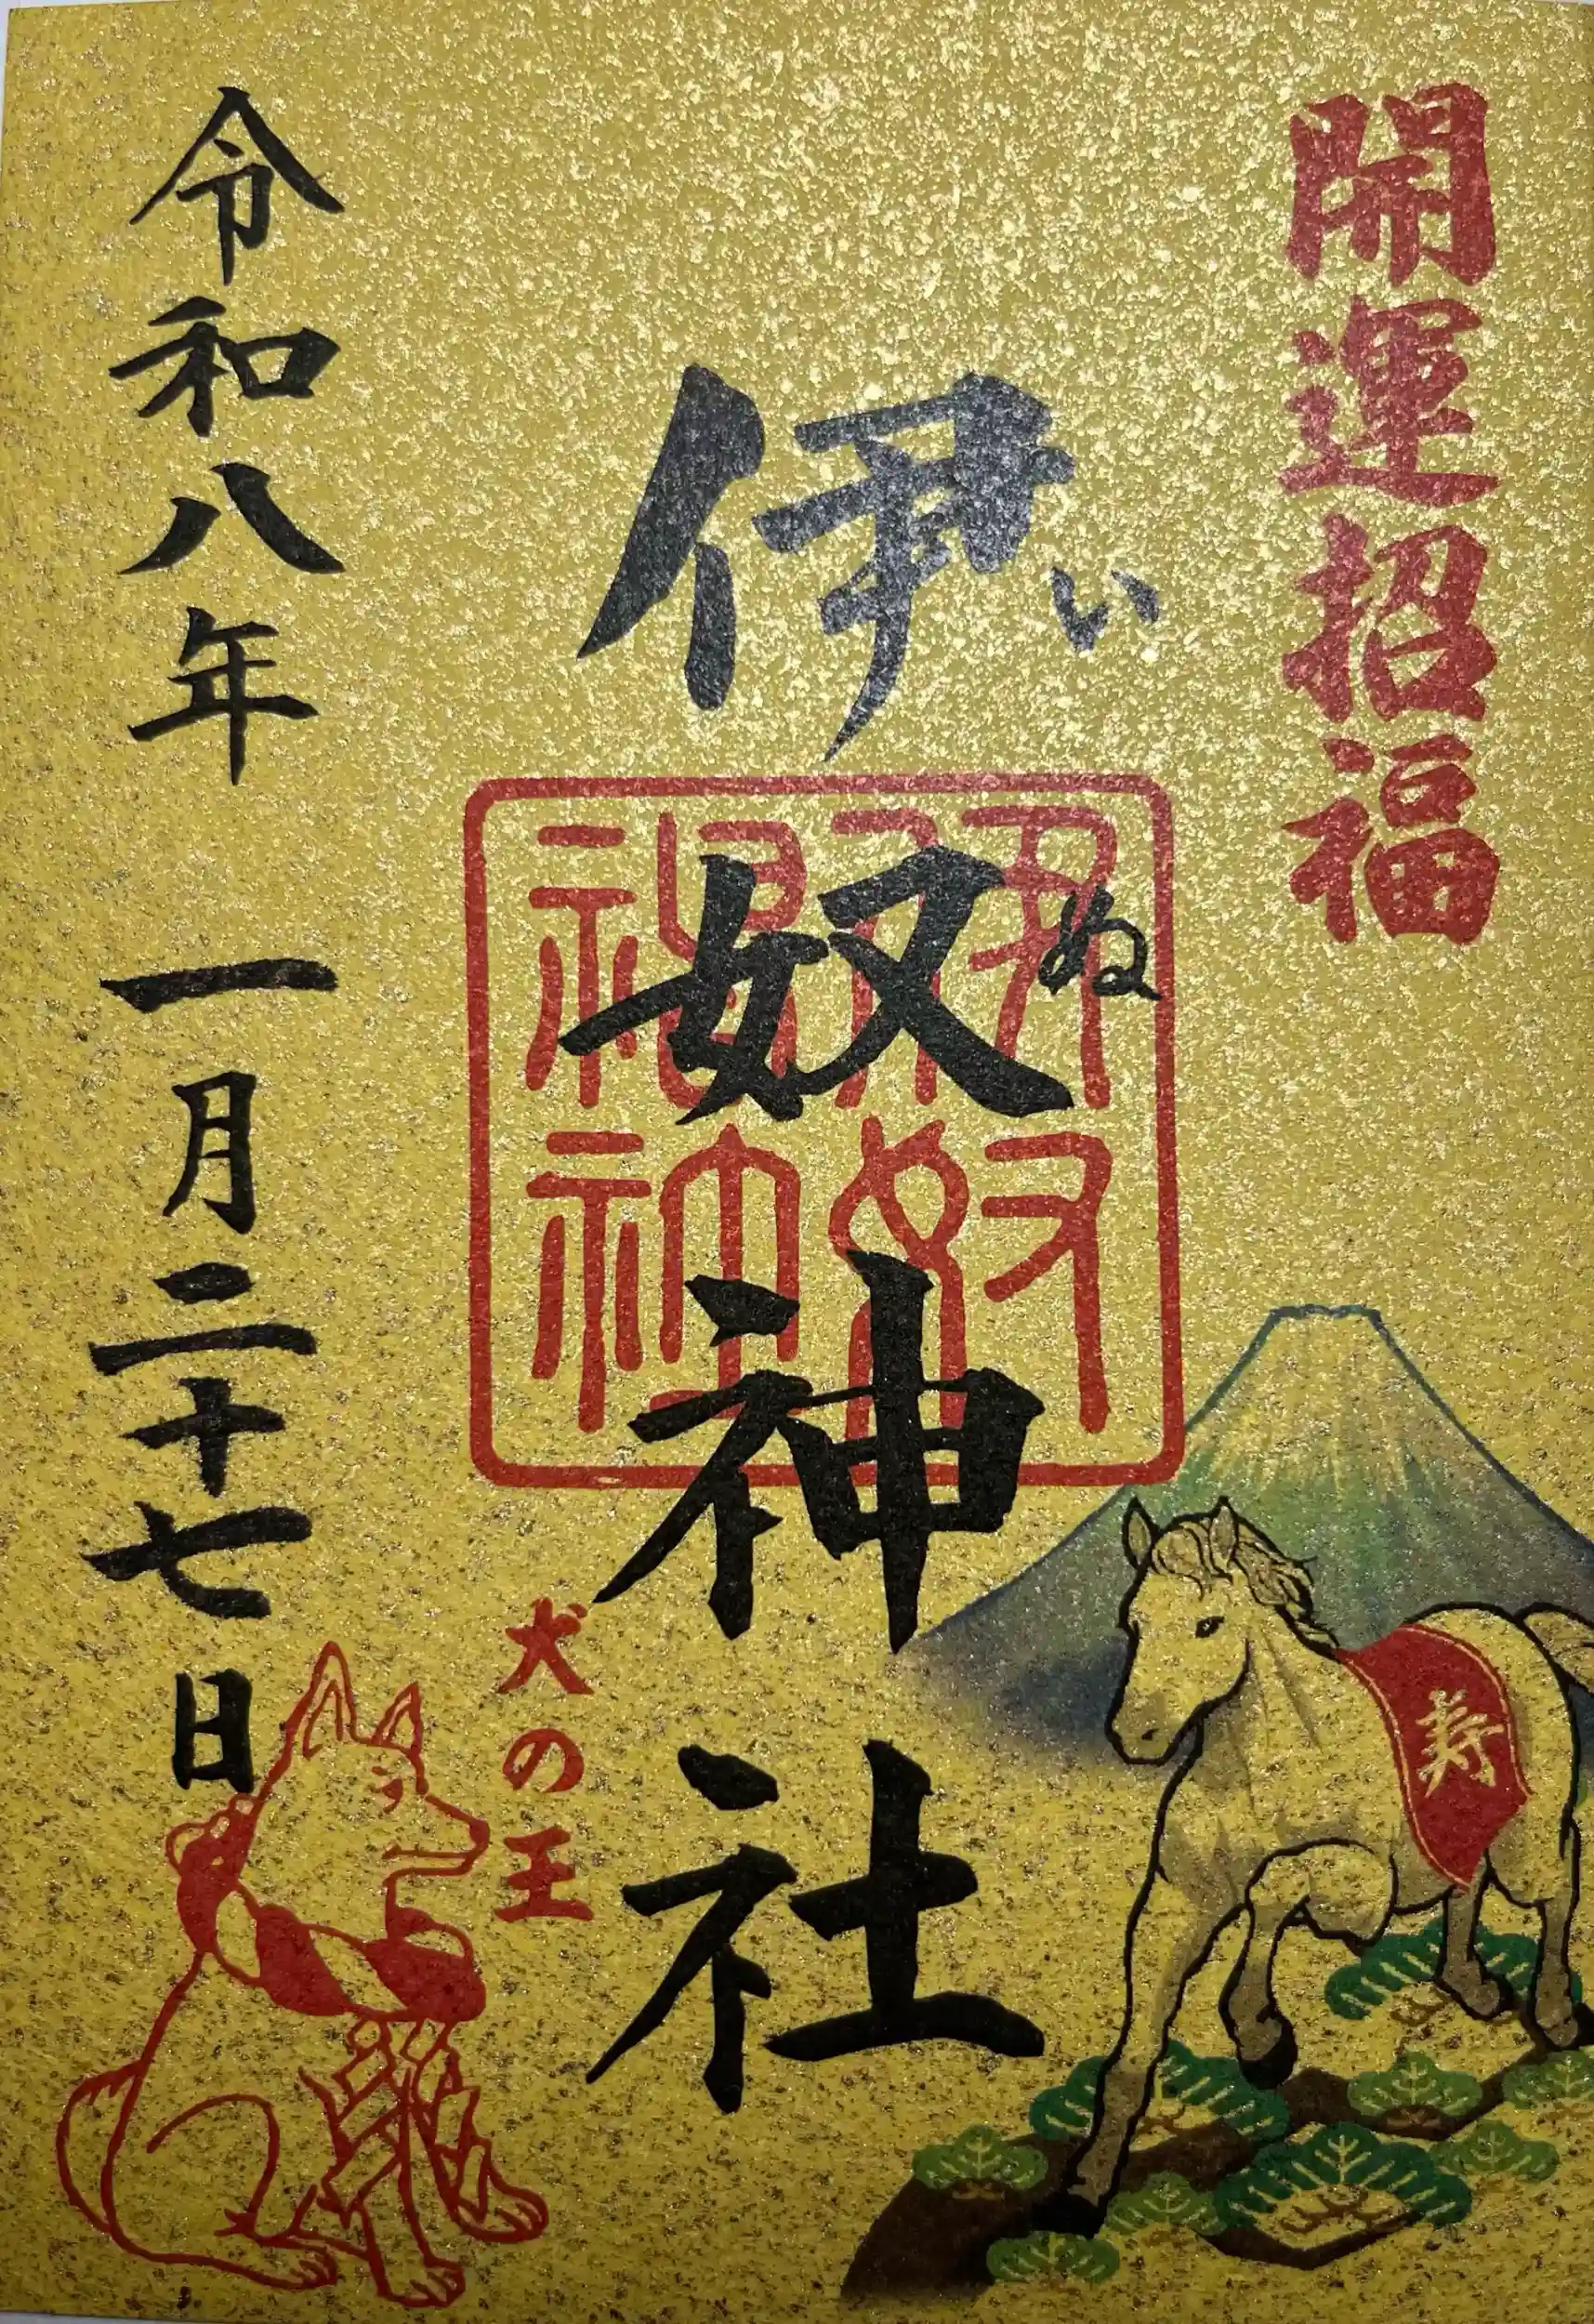 開運招福
伊奴神社
いぬ
伊奴
神社
犬の王
令和八年 一月二十七日
寿